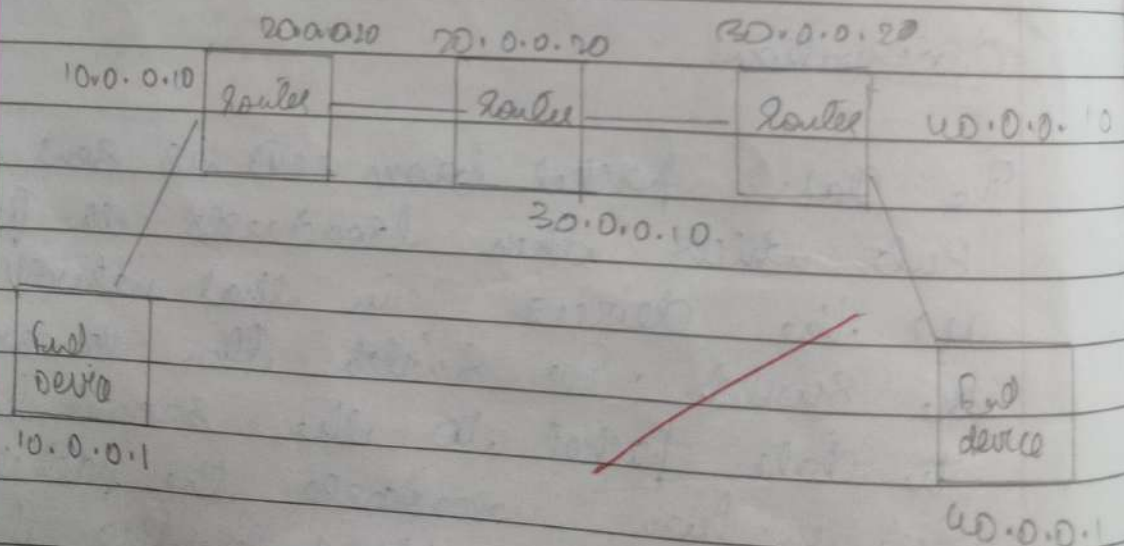 20.0.0.20 20.0.0.20 30.0.0.20
10.0.0.10 Router Router Router 40.0.0.10
30.0.0.10
End
Device
10.0.0.1
End
device
40.0.0.1